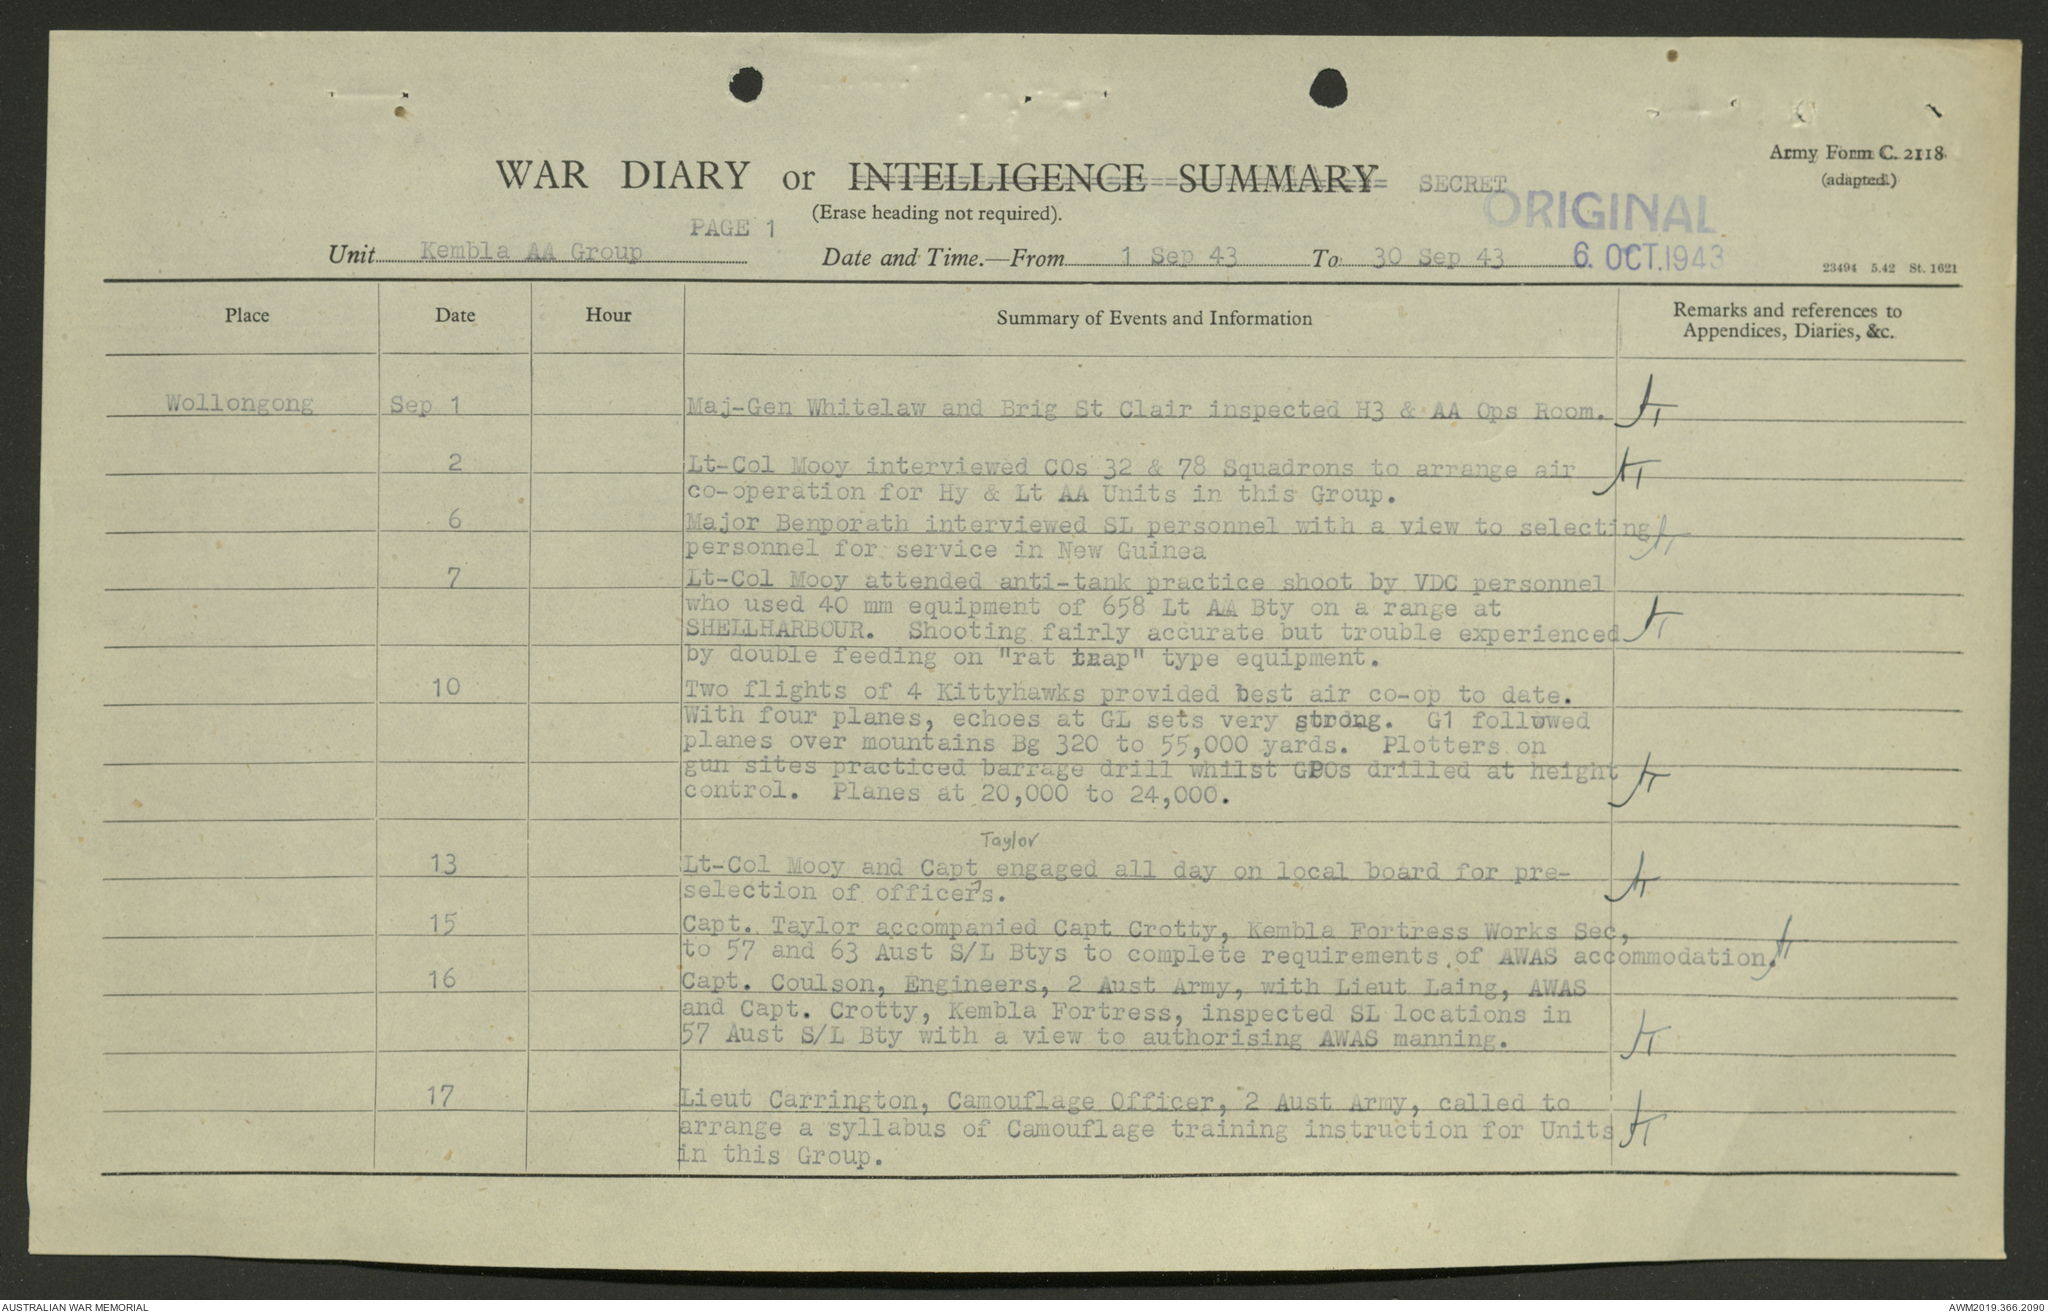 Army Form C. 2118.
(adapted.)
WAR DIARY or INTELLIGENCE SUMMARY SECRET
ORIGINAL
(Erase heading not required).
PAGE 1
Unit Kembla AA Group Date and Time.—From 1 Sep 43 To 30 Sep 43 6. OCT. 1943
23494 5.42 St. 1621
Place Date Hour Summary of Events and Information Remarks and references to
Appendices, Diaries, &c.
Wollongong Sep 1 Maj-Gen Whitelaw and Brig St Clair inspected H3 & AA Ops Room.
2 Lt-Col Mooy interviewed COs 32 & 78 Squadrons to arrange air
co-operation for Hy & Lt AA Units in this Group.
6 Major Benporath interviewed SL personnel with a view to selecting
personnel for service in New Guinea
7 Lt-Col Mooy attended anti-tank practice shoot by VDC personnel
who used 40 mm equipment of 658 Lt AA Bty on a range at
SHELLHARBOUR. Shooting fairly accurate but trouble experienced
by double feeding on "rat trap" type equipment.
10 Two flights of 4 Kittyhawks provided best air co-op to date.
With four planes, echoes at GL sets very strong. G1 followed
planes over mountains Bg 320 to 55,000 yards. Plotters on
gun sites practiced barrage drill whilst GPOs drilled at height
control. Planes at 20,000 to 24,000.
Taylor
13 Lt-Col Mooy and Capt engaged all day on local board for pre-
selection of officers.
15 Capt. Taylor accompanied Capt Crotty, Kembla Fortress Works Sec,
to 57 and 63 Aust S/L Btys to complete requirements of AWAS accommodation.
16 Capt. Coulson, Engineers, 2 Aust Army, with Lieut Laing, AWAS
and Capt. Crotty, Kembla Fortress, inspected SL locations in
57 Aust S/L Bty with a view to authorising AWAS manning.
17 Lieut Carrington, Camouflage Officer, 2 Aust Army, called to
arrange a syllabus of Camouflage training instruction for Units
in this Group.
AUSTRALIAN WAR MEMORIAL
AWM2019.366.2090